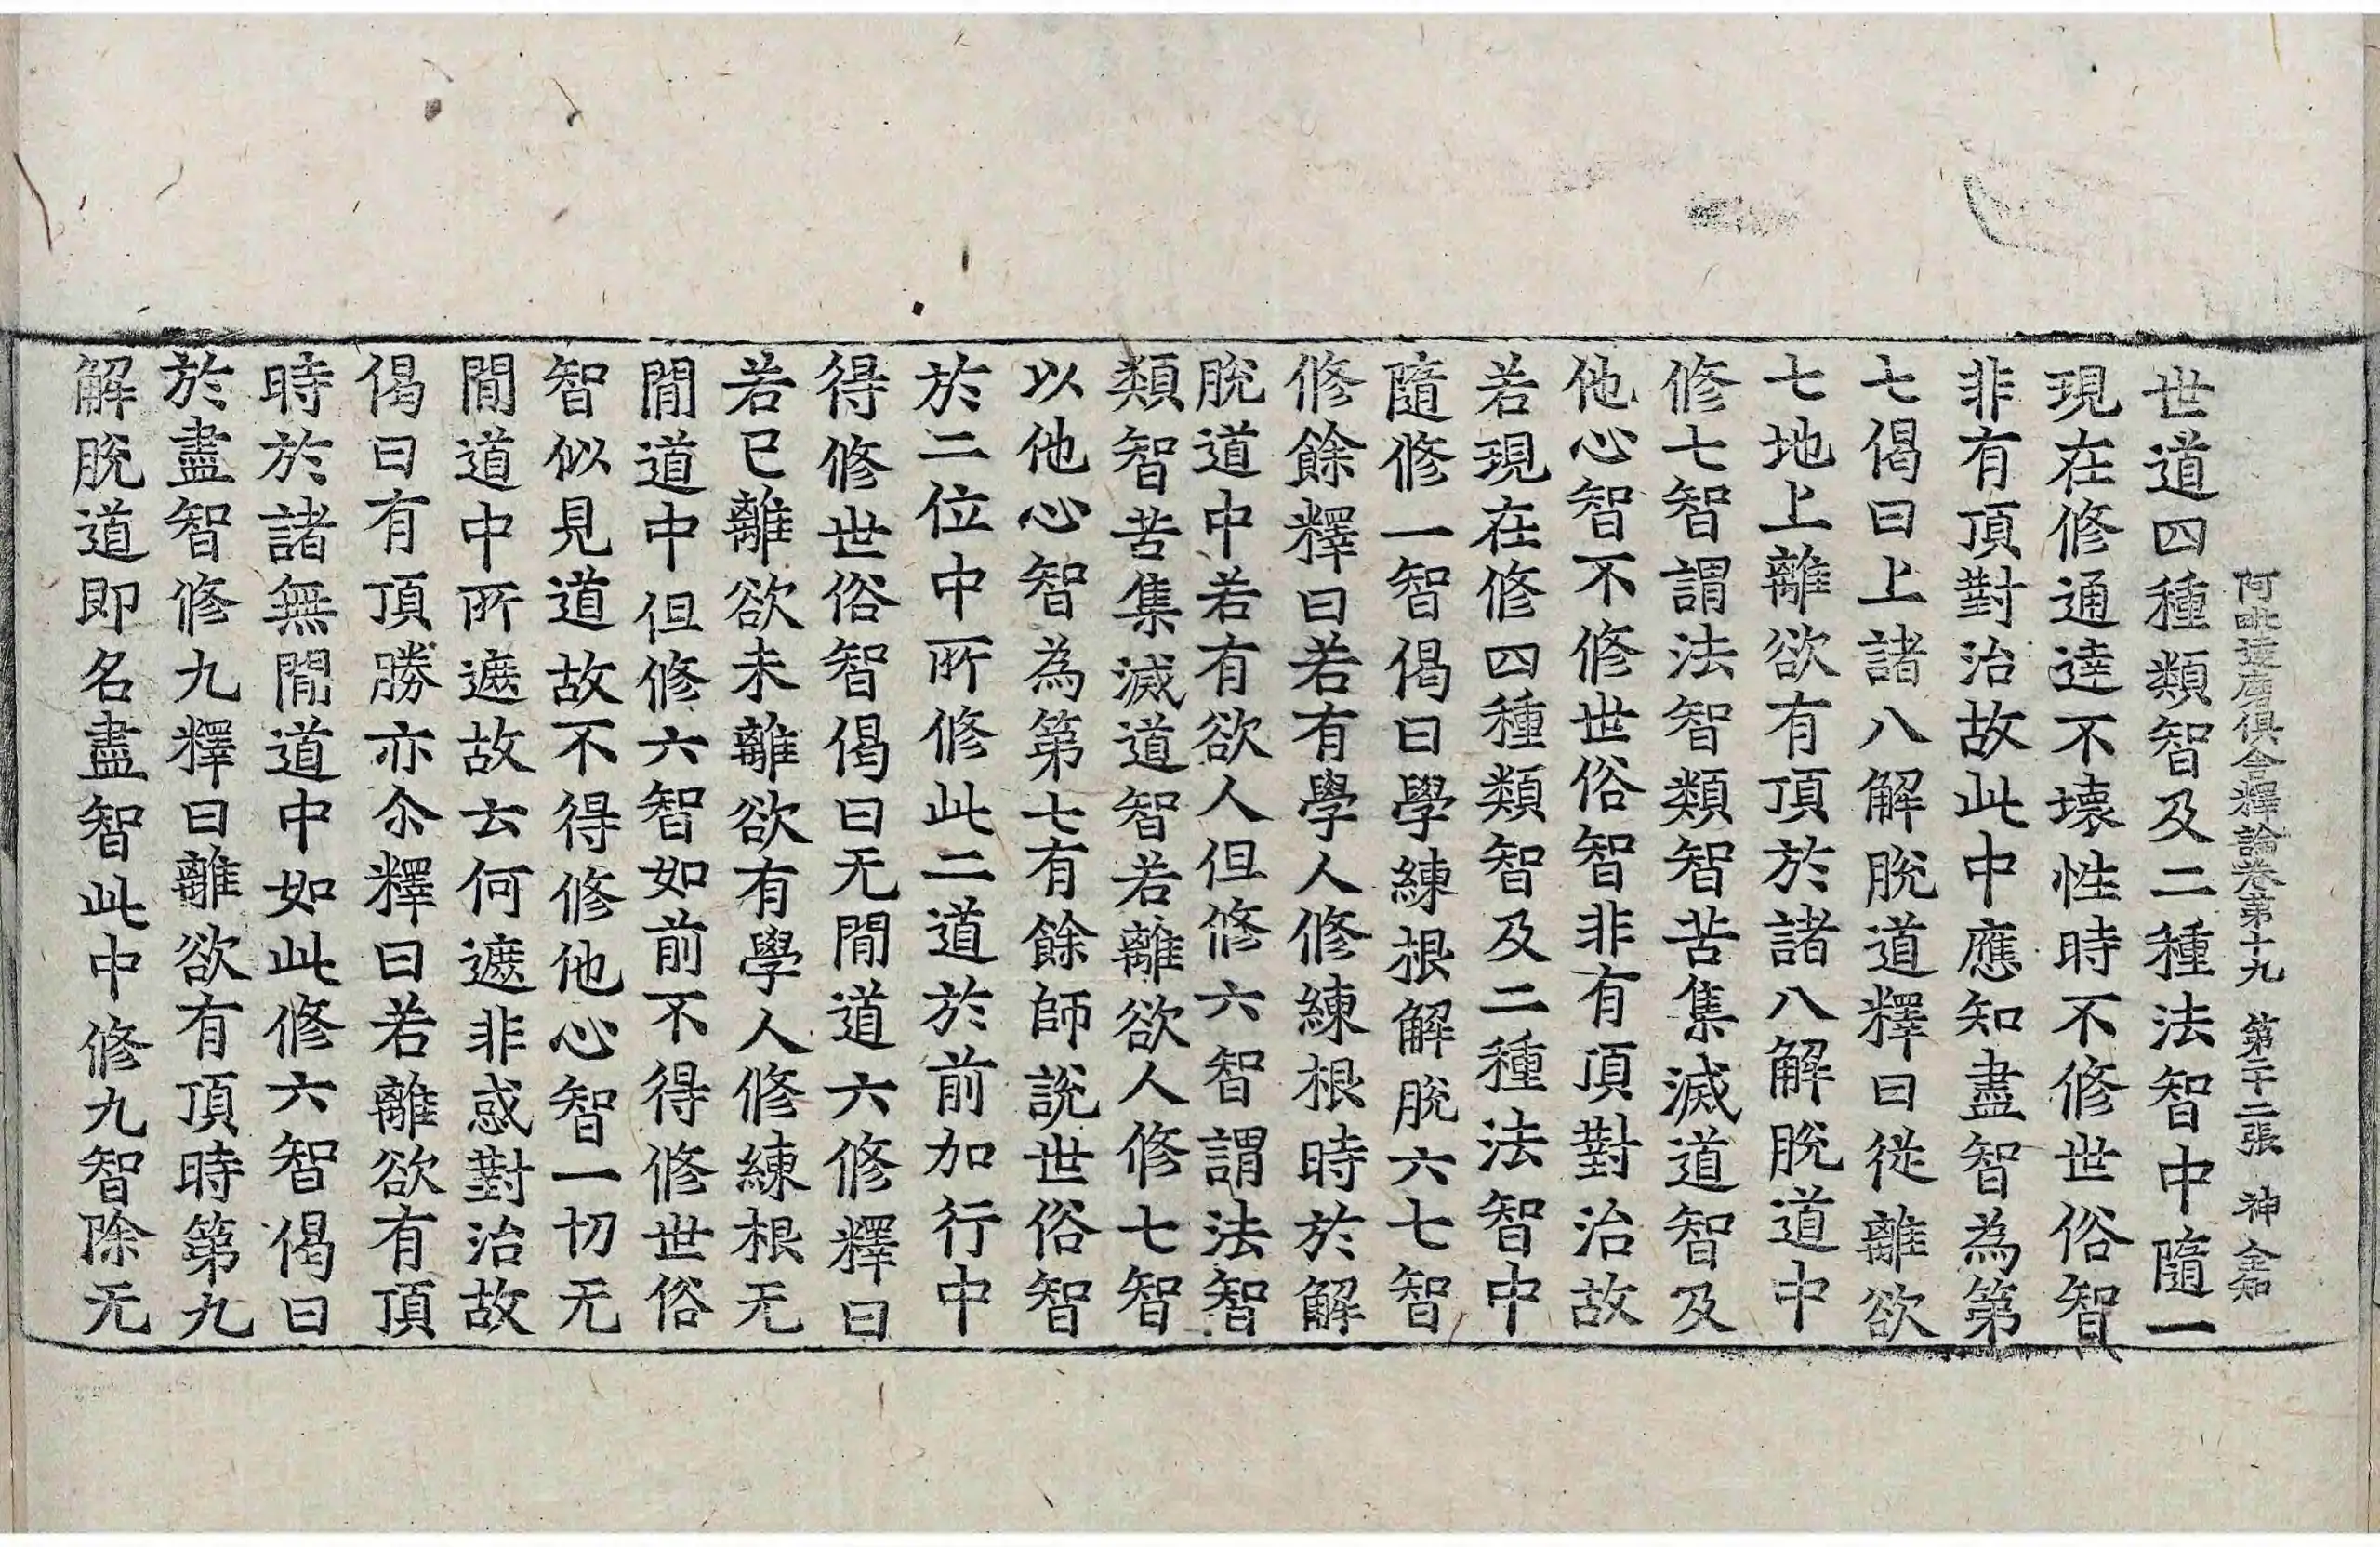 阿毗達磨俱舍釋論卷第十九 第二十二張 神 全知
世道四種類智及二種法智中隨一
現在修通達不壞性時不修世俗智
非有頂對治故此中應知盡智為第
七偈曰上諸八解脫道釋曰從離欲
七地上離欲有頂於諸八解脫道中
修七智謂法智類智苦集滅道智及
他心智不修世俗智非有頂對治故
若現在修四種類智及二種法智中
隨修一智偈曰學練根解脫六七智
修餘釋曰若有學人修練根時於解
脫道中若有欲人但修六智謂法智
類智苦集滅道智若離欲人修七智
以他心智為第七有餘師說世俗智
於二位中所修此二道於前加行中
得修世俗智偈曰无閒道六修釋曰
若已離欲未離欲有學人修練根无
閒道中但修六智如前不得修世俗
智似見道故不得修他心智一切无
閒道中所遮故去何遮非惑對治故
偈曰有頂勝亦尒釋曰若離欲有頂
時於諸無閒道中如此修六智偈曰
於盡智修九釋曰離欲有頂時第九
解脫道即名盡智此中修九智除无